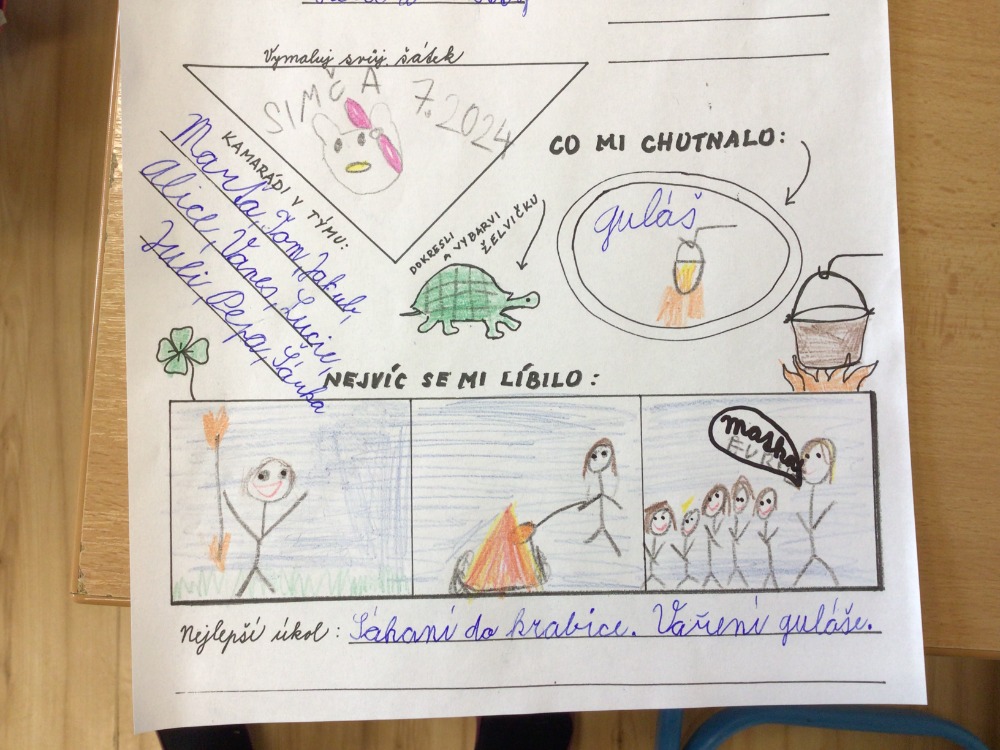 Vymaluj svůj šátek
SIMČA 7.2024
KAMARÁDI V TÝMU:
Marťa, Tom, Jakub,
Alice, Vanes, Lucie,
Juli, Pepa, Šárka
DOKRESLI
A VYBARVI
ŽELVIČKU
CO MI CHUTNALO:
guláš
NEJVÍC SE MI LÍBILO:
Nejlepší úkol: Sáhaní do krabice. Vaření guláše.